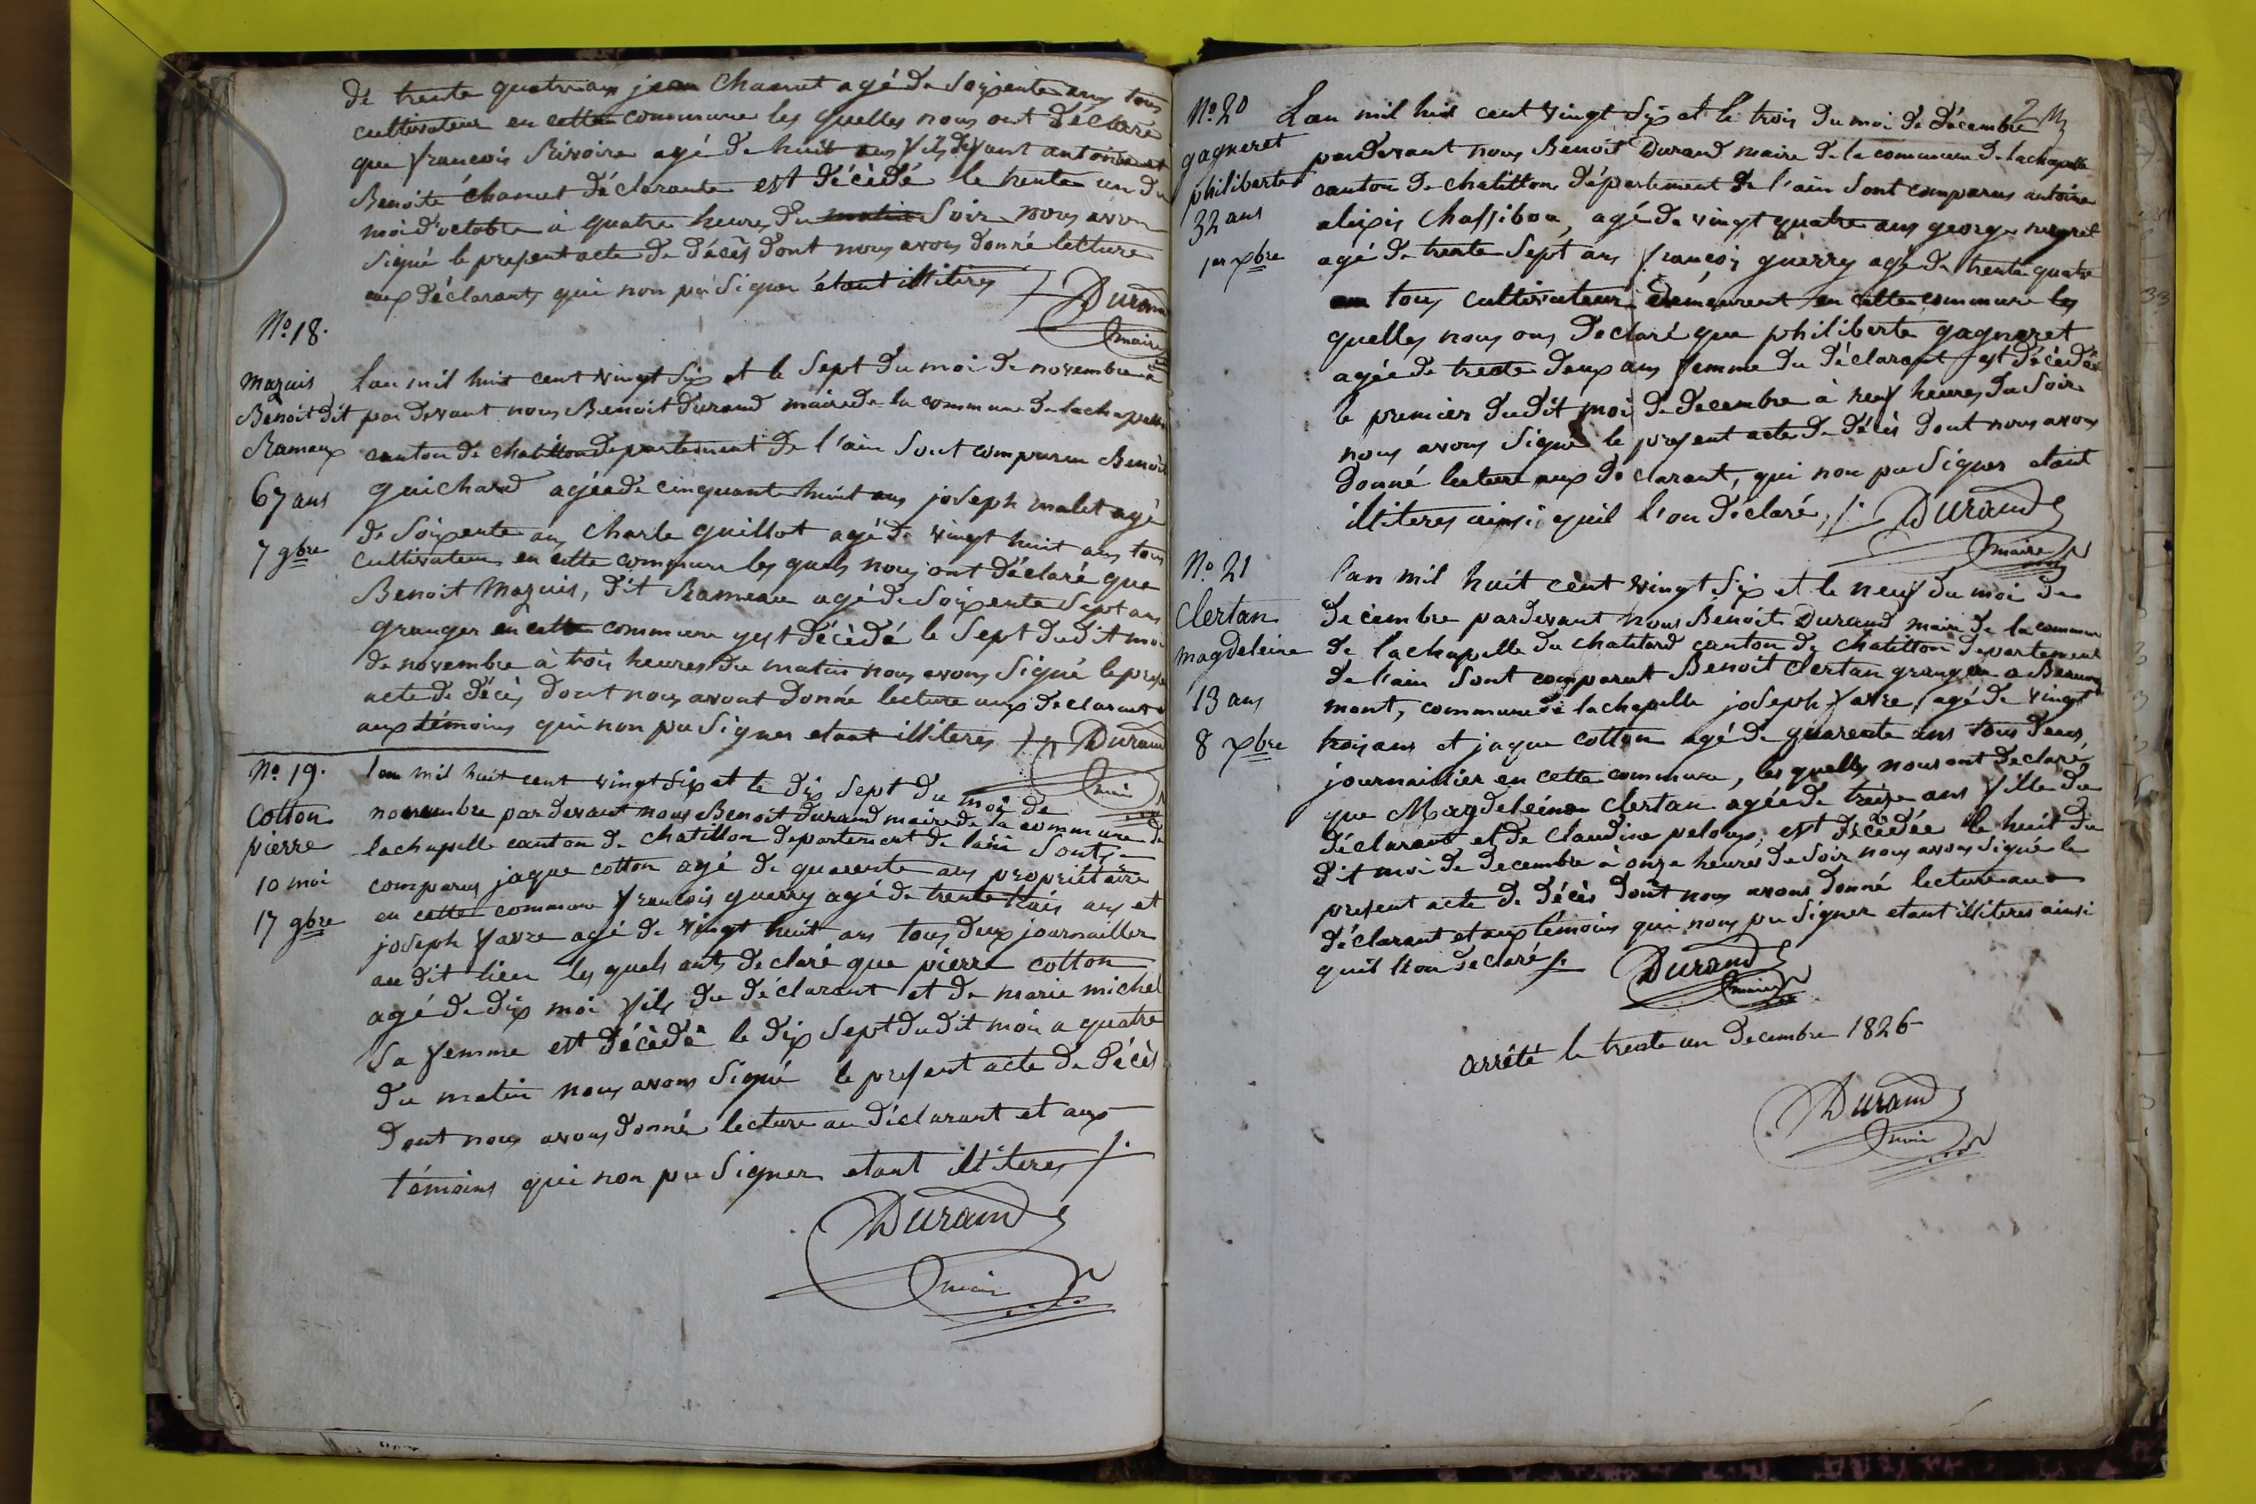 de trente quatre ans jean Chanut agé de Soixente ans tous
cultivateur en cette commune les quelles nous ont déclaré
que françois Rivoire agé de huit ans fils de fant antoine et
Benoite chanut déclarante est décèdé le trente un du
moi d'octobre à quatre heures du matin Soir nous avon
Signé le present acte de décès dont nous avons donné lecture
aux déclarants qui non pu Signer étant illiteres
Durand
maire
No. 18.
Mazuis
Benoit dit
Rameux
67 ans
7 9bre
lan mil huit cent vingt Six et le Sept du moi de novembre
par devant nous Benoit Durand maire de la commune de lachapelle
canton de chatillon departement de l'ain Sont comparu Benoit
guichard agée de cinquante huit ans joseph malet agé
de Soixente ans Charle guillot agé de vingt huit ans tous
cultivateur en cette commune les quels nous ont déclaré que
Benoit Mazuis, dit Rameau agé de Soixente Sept ans
granger en cette commune yest décèdé le Sept dudit moi
de novembre à trois heures du matin nous avons Signé le present
acte de décès dont nous avont donné lecture aux declarant
aux témoins qui non pu Signer etant illiteres
Durand
maire
No. 19.
Cotton
pierre
10 moi
17 9bre
lan mil huit cent vingt Six et le dix Sept du moi de
novembre par devant nous Benoit durand maire de la commune de
lachapelle canton de chatillon departement de lain Sont
comparus jaque cotton agé de quarente ans propriétaire
en cette commune françois guerry agé de trente trois ans et
joseph favre agé de vingt huit ans tous deux journailler
au dit lieu les quels ont declaré que pierre cotton
agé de dix moi fils du déclarant et de marie michel
Sa femme est décèdé le dix Sept dudit moi a quatre
du matin nous avons Signé le present acte de décès
dont nous avons donné lecture au déclarant et aux
témoins qui non pu Signer etant illiteres
Durand
maire
No. 20
gagneret
philiberte
32 ans
1er xbre
Lan mil huit cent vingt Six et le trois du moi de décembre
pardevant nous Benoit Durand maire de la commune de lachapelle
canton de chatillon département de l'ain Sont comparus antoine
alixis Chassibou, agé de vingt quatre ans george
agé de trente Sept ans françois guerry agé de trente quatre
tous cultivateur demeurent en cette commune les
quelles nous ons declaré que philiberte gagneret
agée de trente deux ans femme du déclarant est décèdée
le premier dudit moi de decembre à neuf heures du Soir
nous avons Signé le present acte de décès dont nous avons
donné lecture aux declarant, qui non pu Signer etant
illiteres ainsi quil l'on déclaré,
Durand
maire
No. 21
Clertan
Magdeleine
13 ans
8 xbre
l'an mil huit cent vingt Six et le neuf du moi de
decembre pardevant nous Benoit Durand maire de la commune
de lachapelle du chatelard canton de chatillon departement
de l'ain Sont comparut Benoit Clertan granger a
mont, commune de lachapelle joseph favre, agé de vingt
trois ans et jaque cotton agé de quarente ans tous deux
journaillier en cette commune, les quelles nous ont declaré
que Magdeleine Clertan agée de treize ans fille du
déclarant et de claudine peloux, est décèdée le huit du
dit moi de decembre à onze heures du Soir nous avons Signé le
present acte de décès dont nous avons donné lecture au
déclarant et aux témoins qui nons pu Signer etant illiteres ainsi
quil lon declaré
Durand
maire
arrêté le trente un decembre 1826
Durand
maire